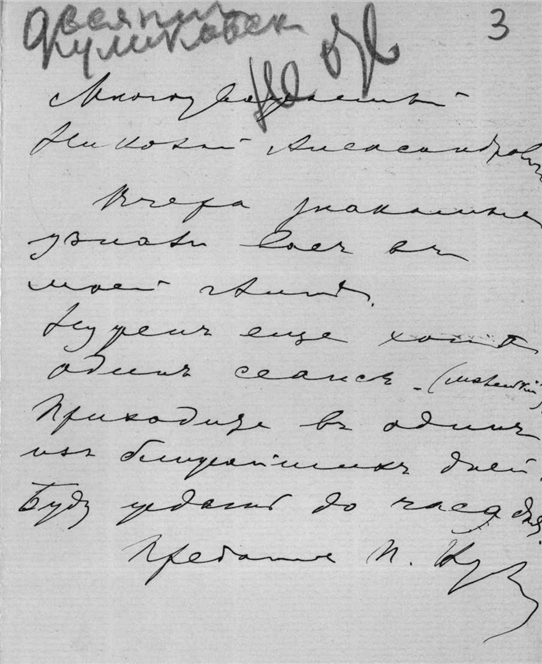 Овсянико
Куликовск
3
Многоуважаемый
Николай Александрович
Вчера знакомые
узнали Васъ въ
моей
Нуженъ еще хотя
одинъ сеансъ - (маленькій)
Приходите въ одинъ
изъ ближайшихъ дней.
Буду ждать до часа дня.
Преданный Н.